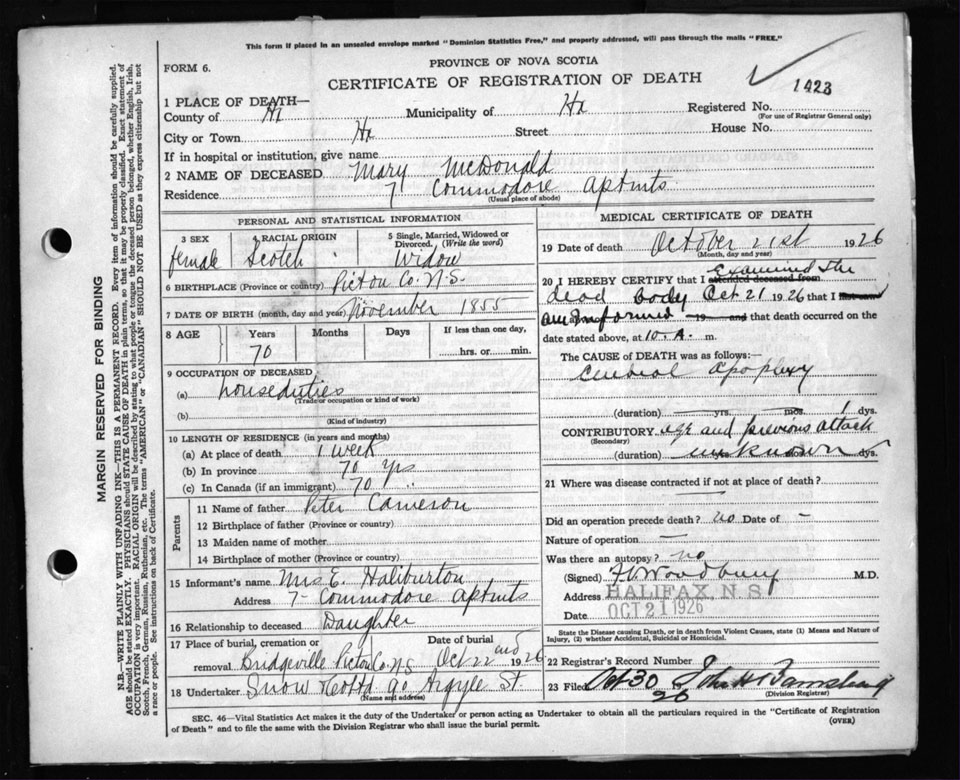 This form if placed in an unsealed envelope marked "Dominion Statistics Free," and properly addressed, will pass through the mails "FREE."
FORM 6.
PROVINCE OF NOVA SCOTIA
CERTIFICATE OF REGISTRATION OF DEATH
1923
1 PLACE OF DEATH—
County of Hx Municipality of Hx Registered No.
(For use of Registrar General only)
City or Town Hx Street House No.
If in hospital or institution, give name
2 NAME OF DECEASED Mary McDonald
Residence 7 Commodore Aptmts.
(Usual place of abode)
PERSONAL AND STATISTICAL INFORMATION
3 SEX 4 RACIAL ORIGIN 5 Single, Married, Widowed or Divorced. (Write the word)
female Scotch Widow
6 BIRTHPLACE (Province or country) Pictou Co. N.S.
7 DATE OF BIRTH (month, day and year) November 1855
8 AGE Years Months Days If less than one day,
70 hrs. or min.
9 OCCUPATION OF DECEASED
(a) houseduties
(Trade or occupation or kind of work)
(b)
(Kind of industry)
10 LENGTH OF RESIDENCE (in years and months)
(a) At place of death 1 week
(b) In province 70 yrs
(c) In Canada (if an immigrant) 70 "
Parents
11 Name of father Peter Cameron
12 Birthplace of father (Province or country)
13 Maiden name of mother
14 Birthplace of mother (Province or country)
15 Informant's name Mrs E. Haliburton
Address 7 - Commodore Aptmts
16 Relationship to deceased Daughter
17 Place of burial, cremation or removal Date of burial
Bridgeville Pictou Co. N.S Oct 22 nd 1926
18 Undertaker Snow & Co Ltd 90 Argyle St.
(Name and address)
MEDICAL CERTIFICATE OF DEATH
19 Date of death October 21st 1926
(Month, day and year)
20 I HEREBY CERTIFY that I attended deceased from Examined the
dead body Oct 21 1926 that I
am Informed 19 and that death occurred on the
date stated above, at 10. A. m.
The CAUSE of DEATH was as follows:
Cerebral Apoplexy
(duration) yrs. mos. 1 dys.
CONTRIBUTORY age and previous attack
(Secondary)
(duration) unknown dys.
21 Where was disease contracted if not at place of death?
Did an operation precede death? no Date of -
Nature of operation —
Was there an autopsy? no
(Signed) Woodbury M.D.
Address HALIFAX, N S
Date OCT 21 1926
State the Disease causing Death, or in death from Violent Causes, state (1) Means and Nature of Injury, (2) whether Accidental, Suicidal or Homicidal.
22 Registrar's Record Number
23 Filed Oct 30 26 John H
(Division Registrar)
SEC. 46—Vital Statistics Act makes it the duty of the Undertaker or person acting as Undertaker to obtain all the particulars required in the "Certificate of Registration of Death" and to file the same with the Division Registrar who shall issue the burial permit. (OVER)
MARGIN RESERVED FOR BINDING
N.B.—WRITE PLAINLY WITH UNFADING INK—THIS IS A PERMANENT RECORD. Every item of information should be carefully supplied.
AGE should be stated EXACTLY. PHYSICIANS should STATE CAUSE OF DEATH in plain terms, so that it may be properly classified. Exact statement of
OCCUPATION is very important. RACIAL ORIGIN will be described by stating to what people or tongue the deceased person belonged, whether English, Irish,
Scotch, French, German, Russian, Ruthenian, etc. The terms "AMERICAN" or "CANADIAN" SHOULD NOT BE USED as they express citizenship but not
a race or people. See instructions on back of Certificate.